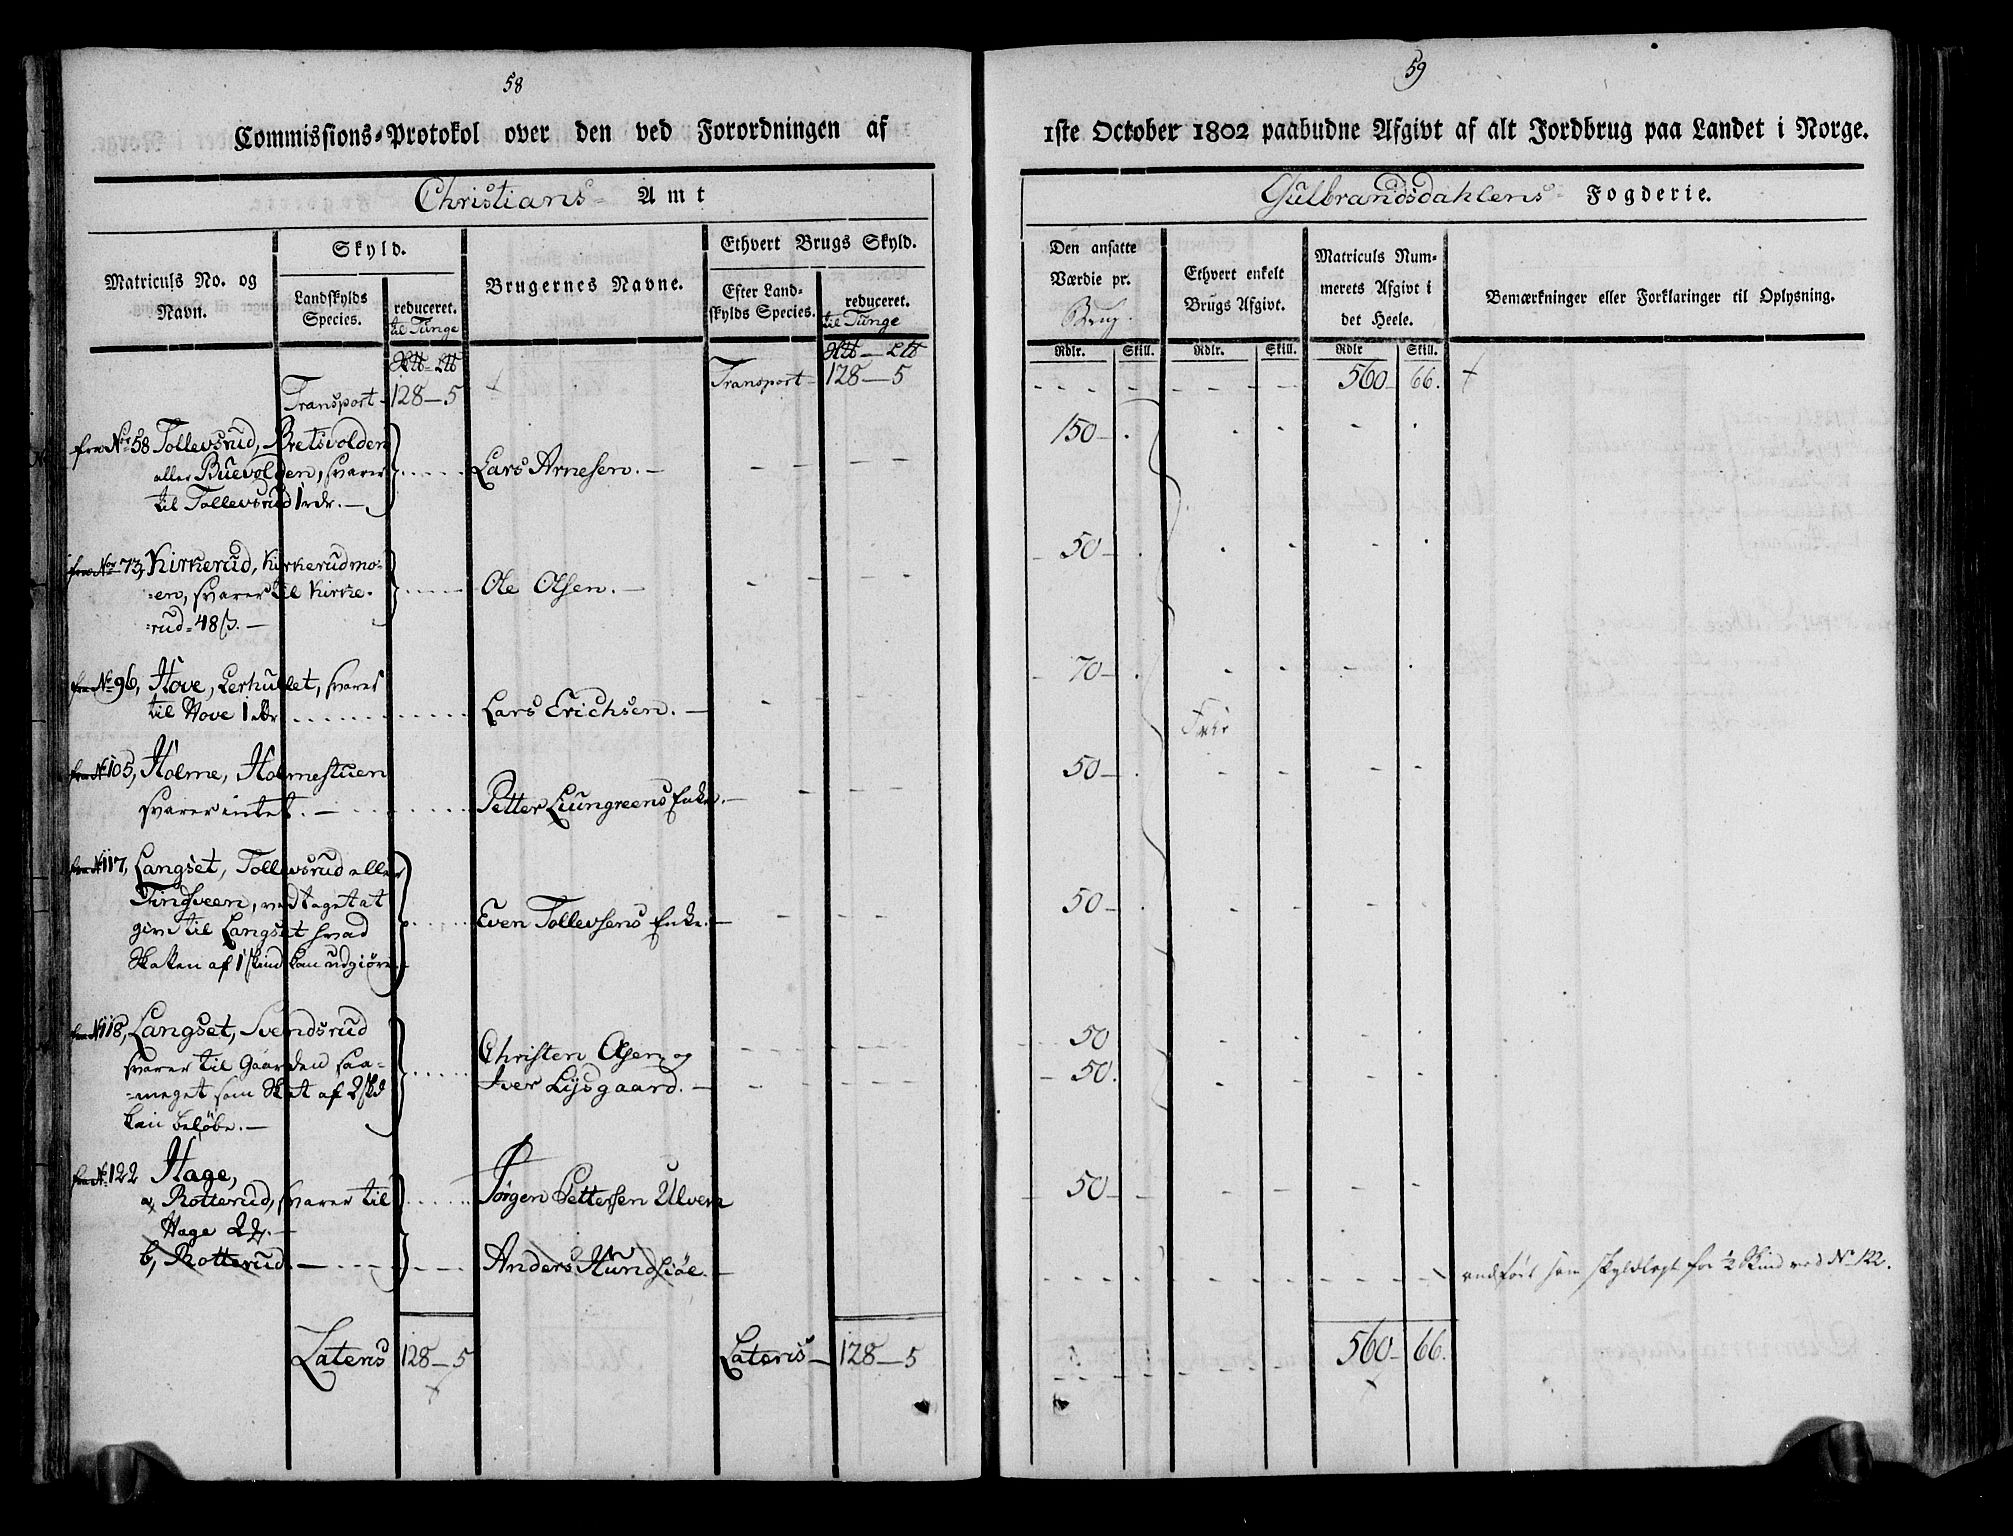 58
Commissions-Protokol over den ved Forordningen af
Christians- Amt
Matriculs No. og
Navn.
Skyld.
Landskylds
Species.
reduceret.
til Tunge
Brugernes Navne.
Ethvert Brugs Skyld.
Efter Land-
skylds Species.
reduceret.
til Tunge
Transport- 128-5
Transport- 128-5
fra No 58 Tollevsrud, Bretsvolden
eller Buevolden, svarer
til Tollevsrud 1 rdr.-
Lars Arnesen.-
fra No 73, Kirkerud, Kirkerudmo-
-en, svarer til Kirke-
-rud-48 ß.-
Ole Olsen.-
fra No 96, Hove, Lerhullet, svarer
til Hove 1 rdr
Lars Erichsen.-
fra No 105, Holme, Holmestuen
svarer intet.-
Petter Liungreens Enke.-
fra No 117, Langset, Tollevsrud eller
Tingsveen, vedtaget at
give til Langset hvad
Skatten af 1 skind kan udgiøre.
Even Tollevsens Enke.-
fra No 118, Langset, Svendsrud
svarer til Gaarden saa-
-meget som Skat af 2 skd
kan beløbe.-
Christen Olsen og
Iver Lysgaard.-
fra No 122 Hage,
a, Rotterud, svarer til
Hage
Jørgen Pettersen Ulven
b, Rotterud.-
Anders Hundsiøe.-
Lateris 128-5
Lateris- 128-5
59
1ste October 1802 paabudne Afgivt af alt Jordbrug paa Landet i Norge.
Gulbrandsdahlens Fogderie.
Den ansatte
Værdie pr.
Brug.
Ethvert enkelt
Brugs Afgivt.
Matriculs Num-
merets Afgivt i
det Heele.
Bemærkninger eller Forklaringer til Oplysning.
Rdlr. Skill. Rdlr. Skill. Rdlr Skill.
560 66.
150
50
70
50
50
50
50.
50
som skyldlagt for 1/2 Skind ved No 122.
560 66.